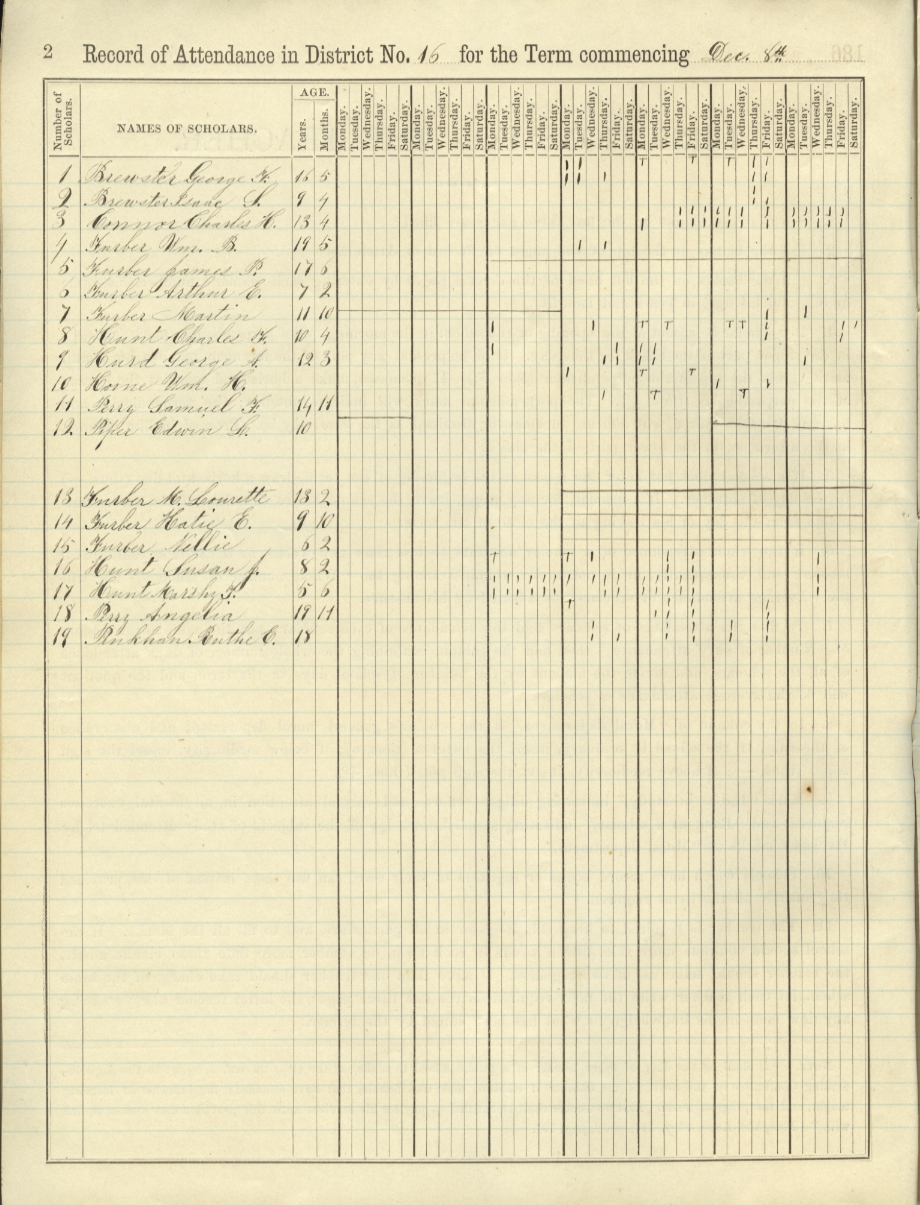 2 Record of Attendance in District No. 16 for the Term commencing Dec. 8th
Number of Scholars. NAMES OF SCHOLARS. AGE. Years. Months. Monday. Tuesday. Wednesday. Thursday. Friday. Saturday. Monday. Tuesday. Wednesday. Thursday. Friday. Saturday. Monday. Tuesday. Wednesday. Thursday. Friday. Saturday. Monday. Tuesday. Wednesday. Thursday. Friday. Saturday. Monday. Tuesday. Wednesday. Thursday. Friday. Saturday. Monday. Tuesday. Wednesday. Thursday. Friday. Saturday. Monday. Tuesday. Wednesday. Thursday. Friday. Saturday.
1 Brewster George F. 16 5
2 Brewster Isaac S. 9 4
3 Connor Charles H. 13 4
4 Furber Wm. B. 19 5
5 Furber James P. 17 6
6 Furber Arthur E. 7 2
7 Furber Martin 11 10
8 Hunt Charles F. 10 4
9 Hurd George A. 12 3
10 Horne Wm. H.
11 Perry Samuel F. 14 11
12 Piper Edwin 10
13 Furber M. Lourette 13 2
14 Furber Hatie E. 9 10
15 Furber Nellie 6 2
16 Hunt Susan J. 8 2
17 Hunt 5 6
18 Perry Angelia 19 11
19 E. 18